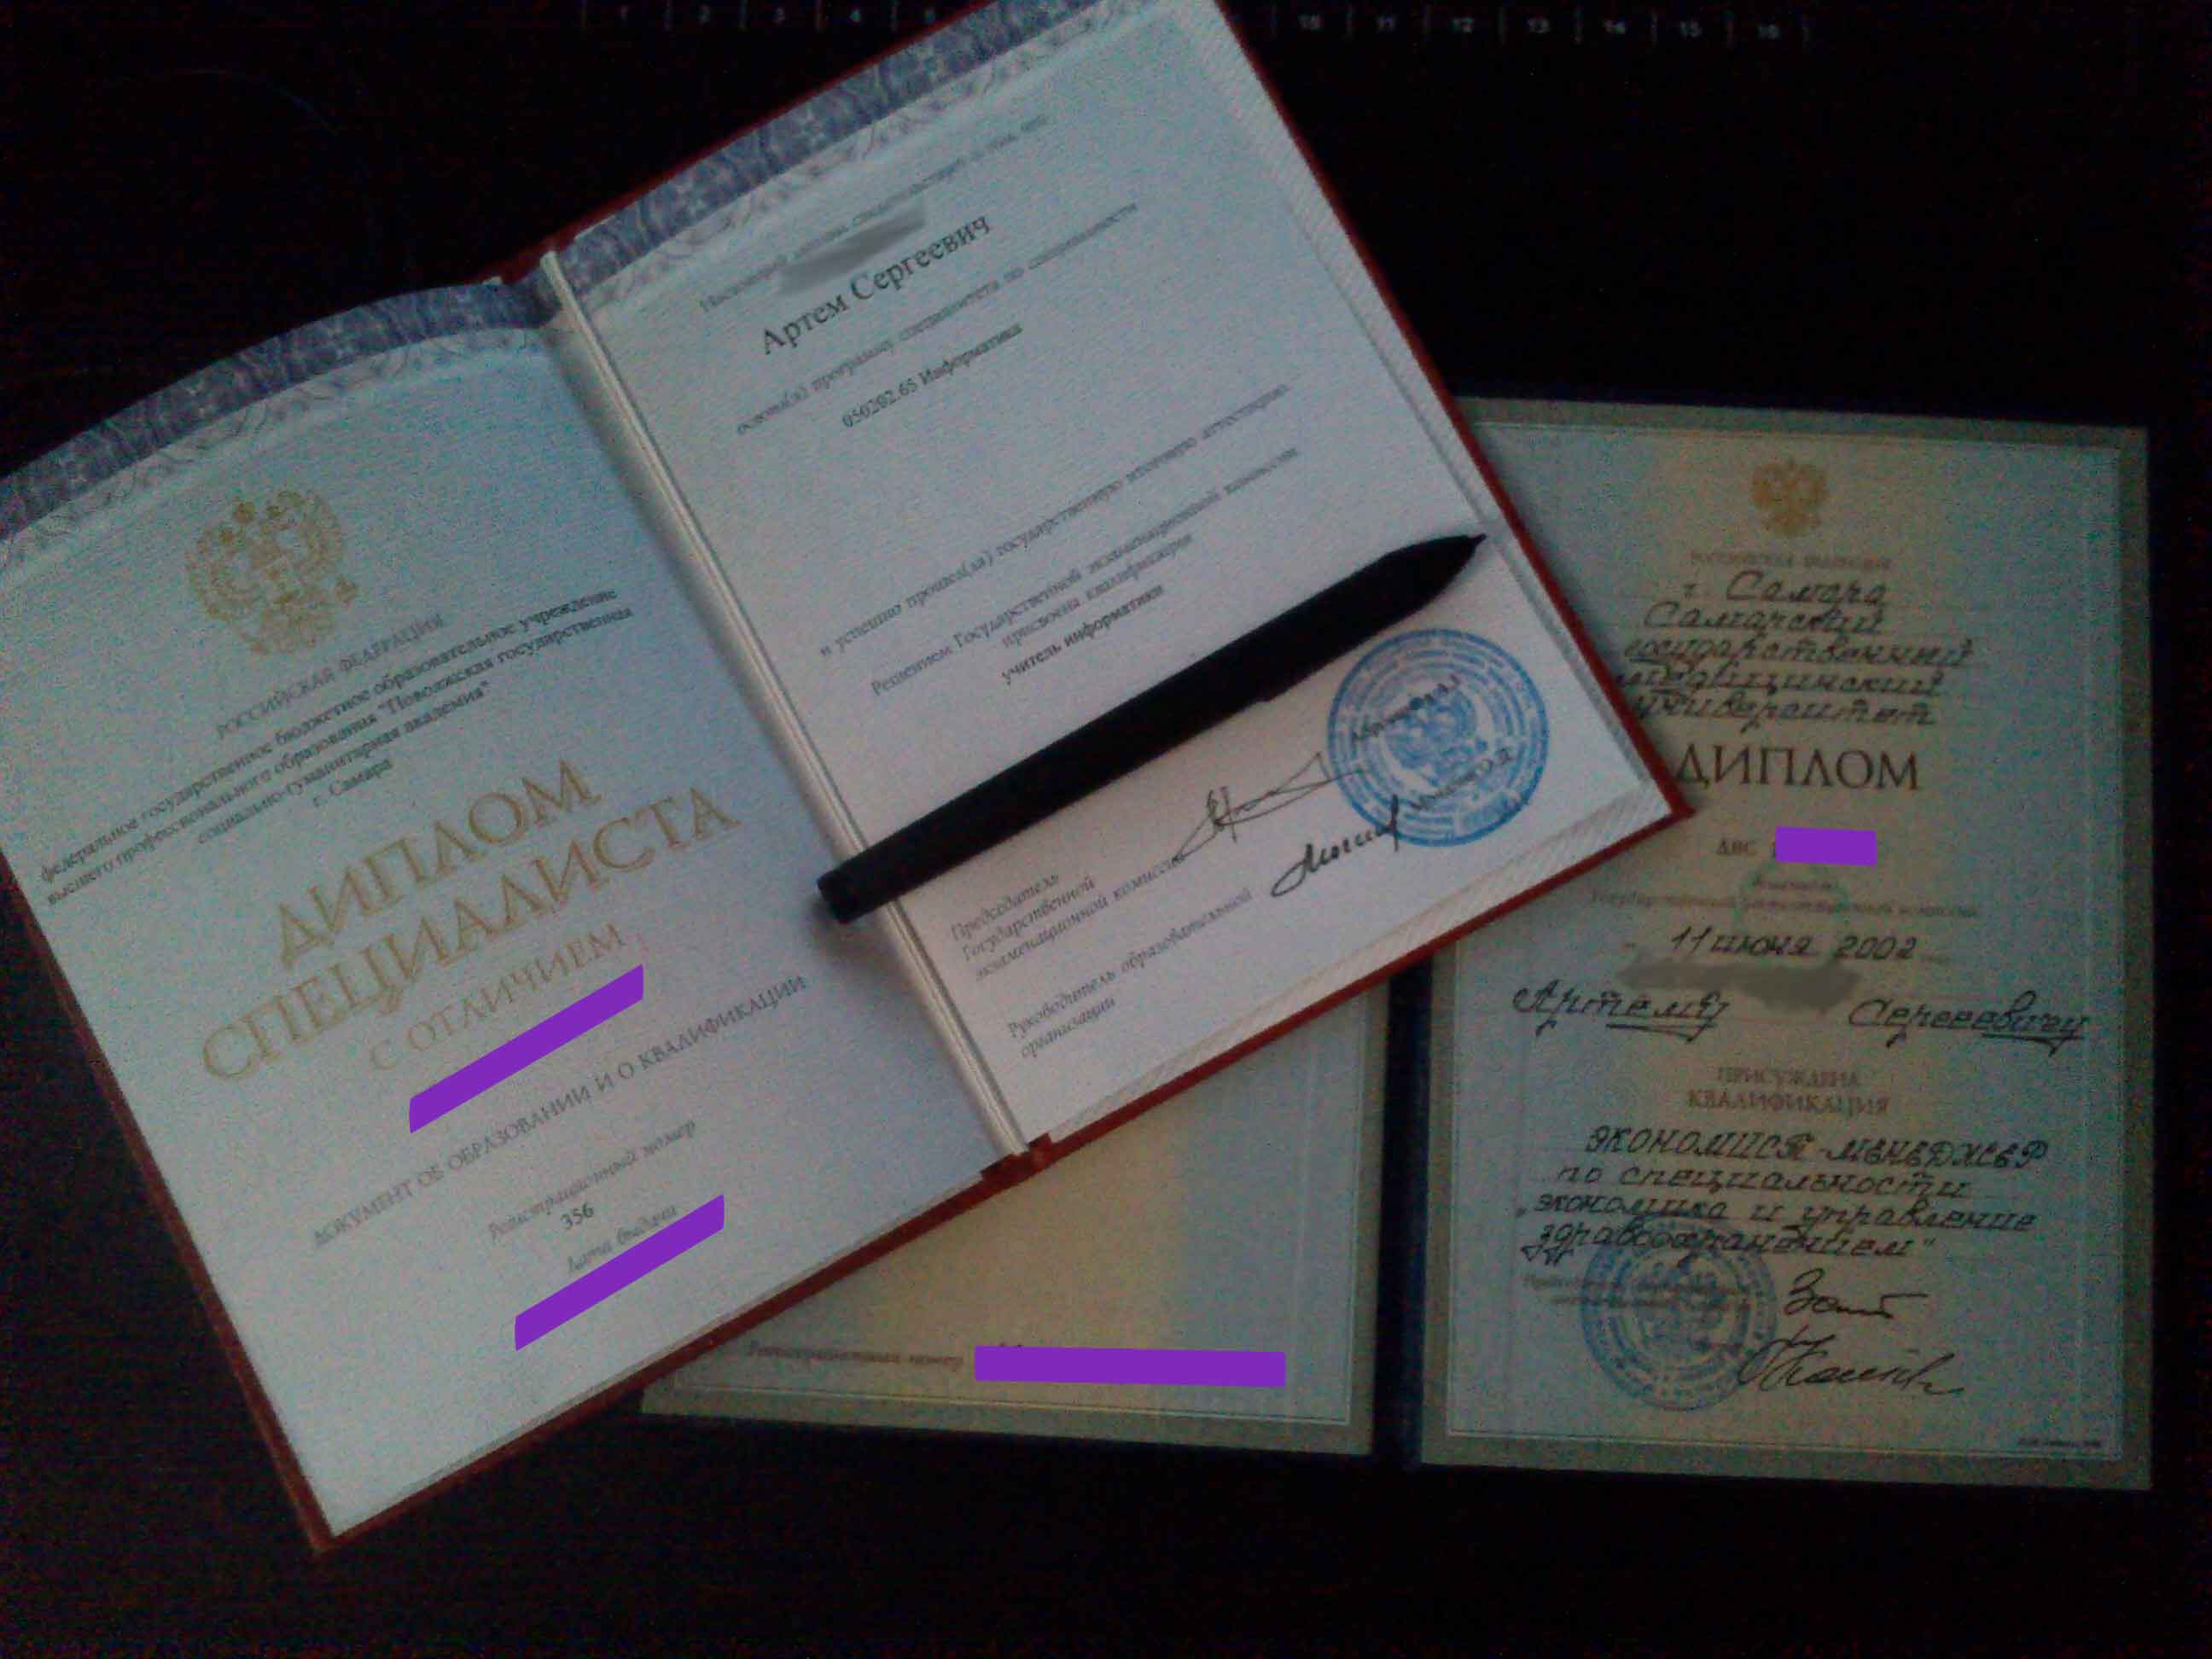 1 2 3 4 5 10 11 12 13 14 15 16
РОССИЙСКАЯ ФЕДЕРАЦИЯ
федеральное государственное бюджетное образовательное учреждение
высшего профессионального образования "Поволжская государственная
социально-гуманитарная академия"
г. Самара
ДИПЛОМ
СПЕЦИАЛИСТА
С ОТЛИЧИЕМ
ДОКУМЕНТ ОБ ОБРАЗОВАНИИ И О КВАЛИФИКАЦИИ
Регистрационный номер
356
Дата выдачи
Настоящий диплом свидетельствует о том, что
Артем Сергеевич
освоил(а) программу специалитета по специальности
050202.65 Информатика
и успешно прошел(ла) государственную итоговую аттестацию
Решением Государственной экзаменационной комиссии
присвоена квалификация
учитель информатики
Председатель
Государственной
экзаменационной комиссии
Руководитель образовательной
организации
РОССИЙСКАЯ ФЕДЕРАЦИЯ
г. Самара
Самарский
государственный
медицинский
университет
ДИПЛОМ
ДВС
Решением
Государственной аттестационной комиссии
11 июня 2002
Артемию Сергеевичу
ПРИСУЖДЕНА
КВАЛИФИКАЦИЯ
ЭКОНОМИСТ-МЕНЕДЖЕР
по специальности
"экономика и управление
здравоохранением"
Регистрационный номер